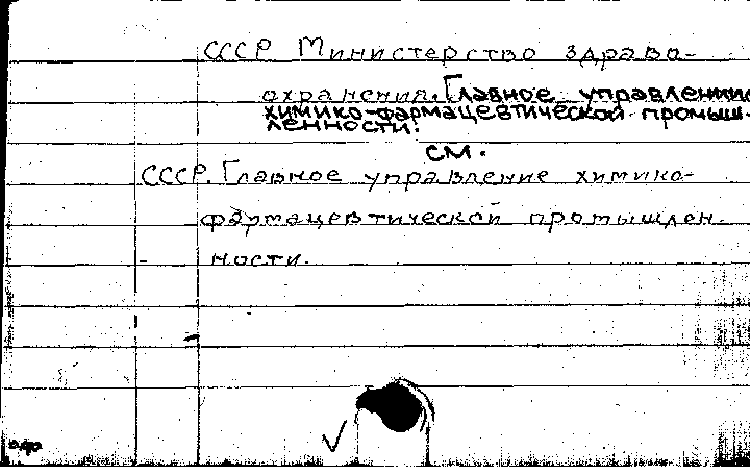 СССР Министерство здраво-
охранения. Главное управление
химико-фармацевтической промыш-
ленности.
см.
СССР. Главное управление химико-
фармацевтической промышлен-
ности.